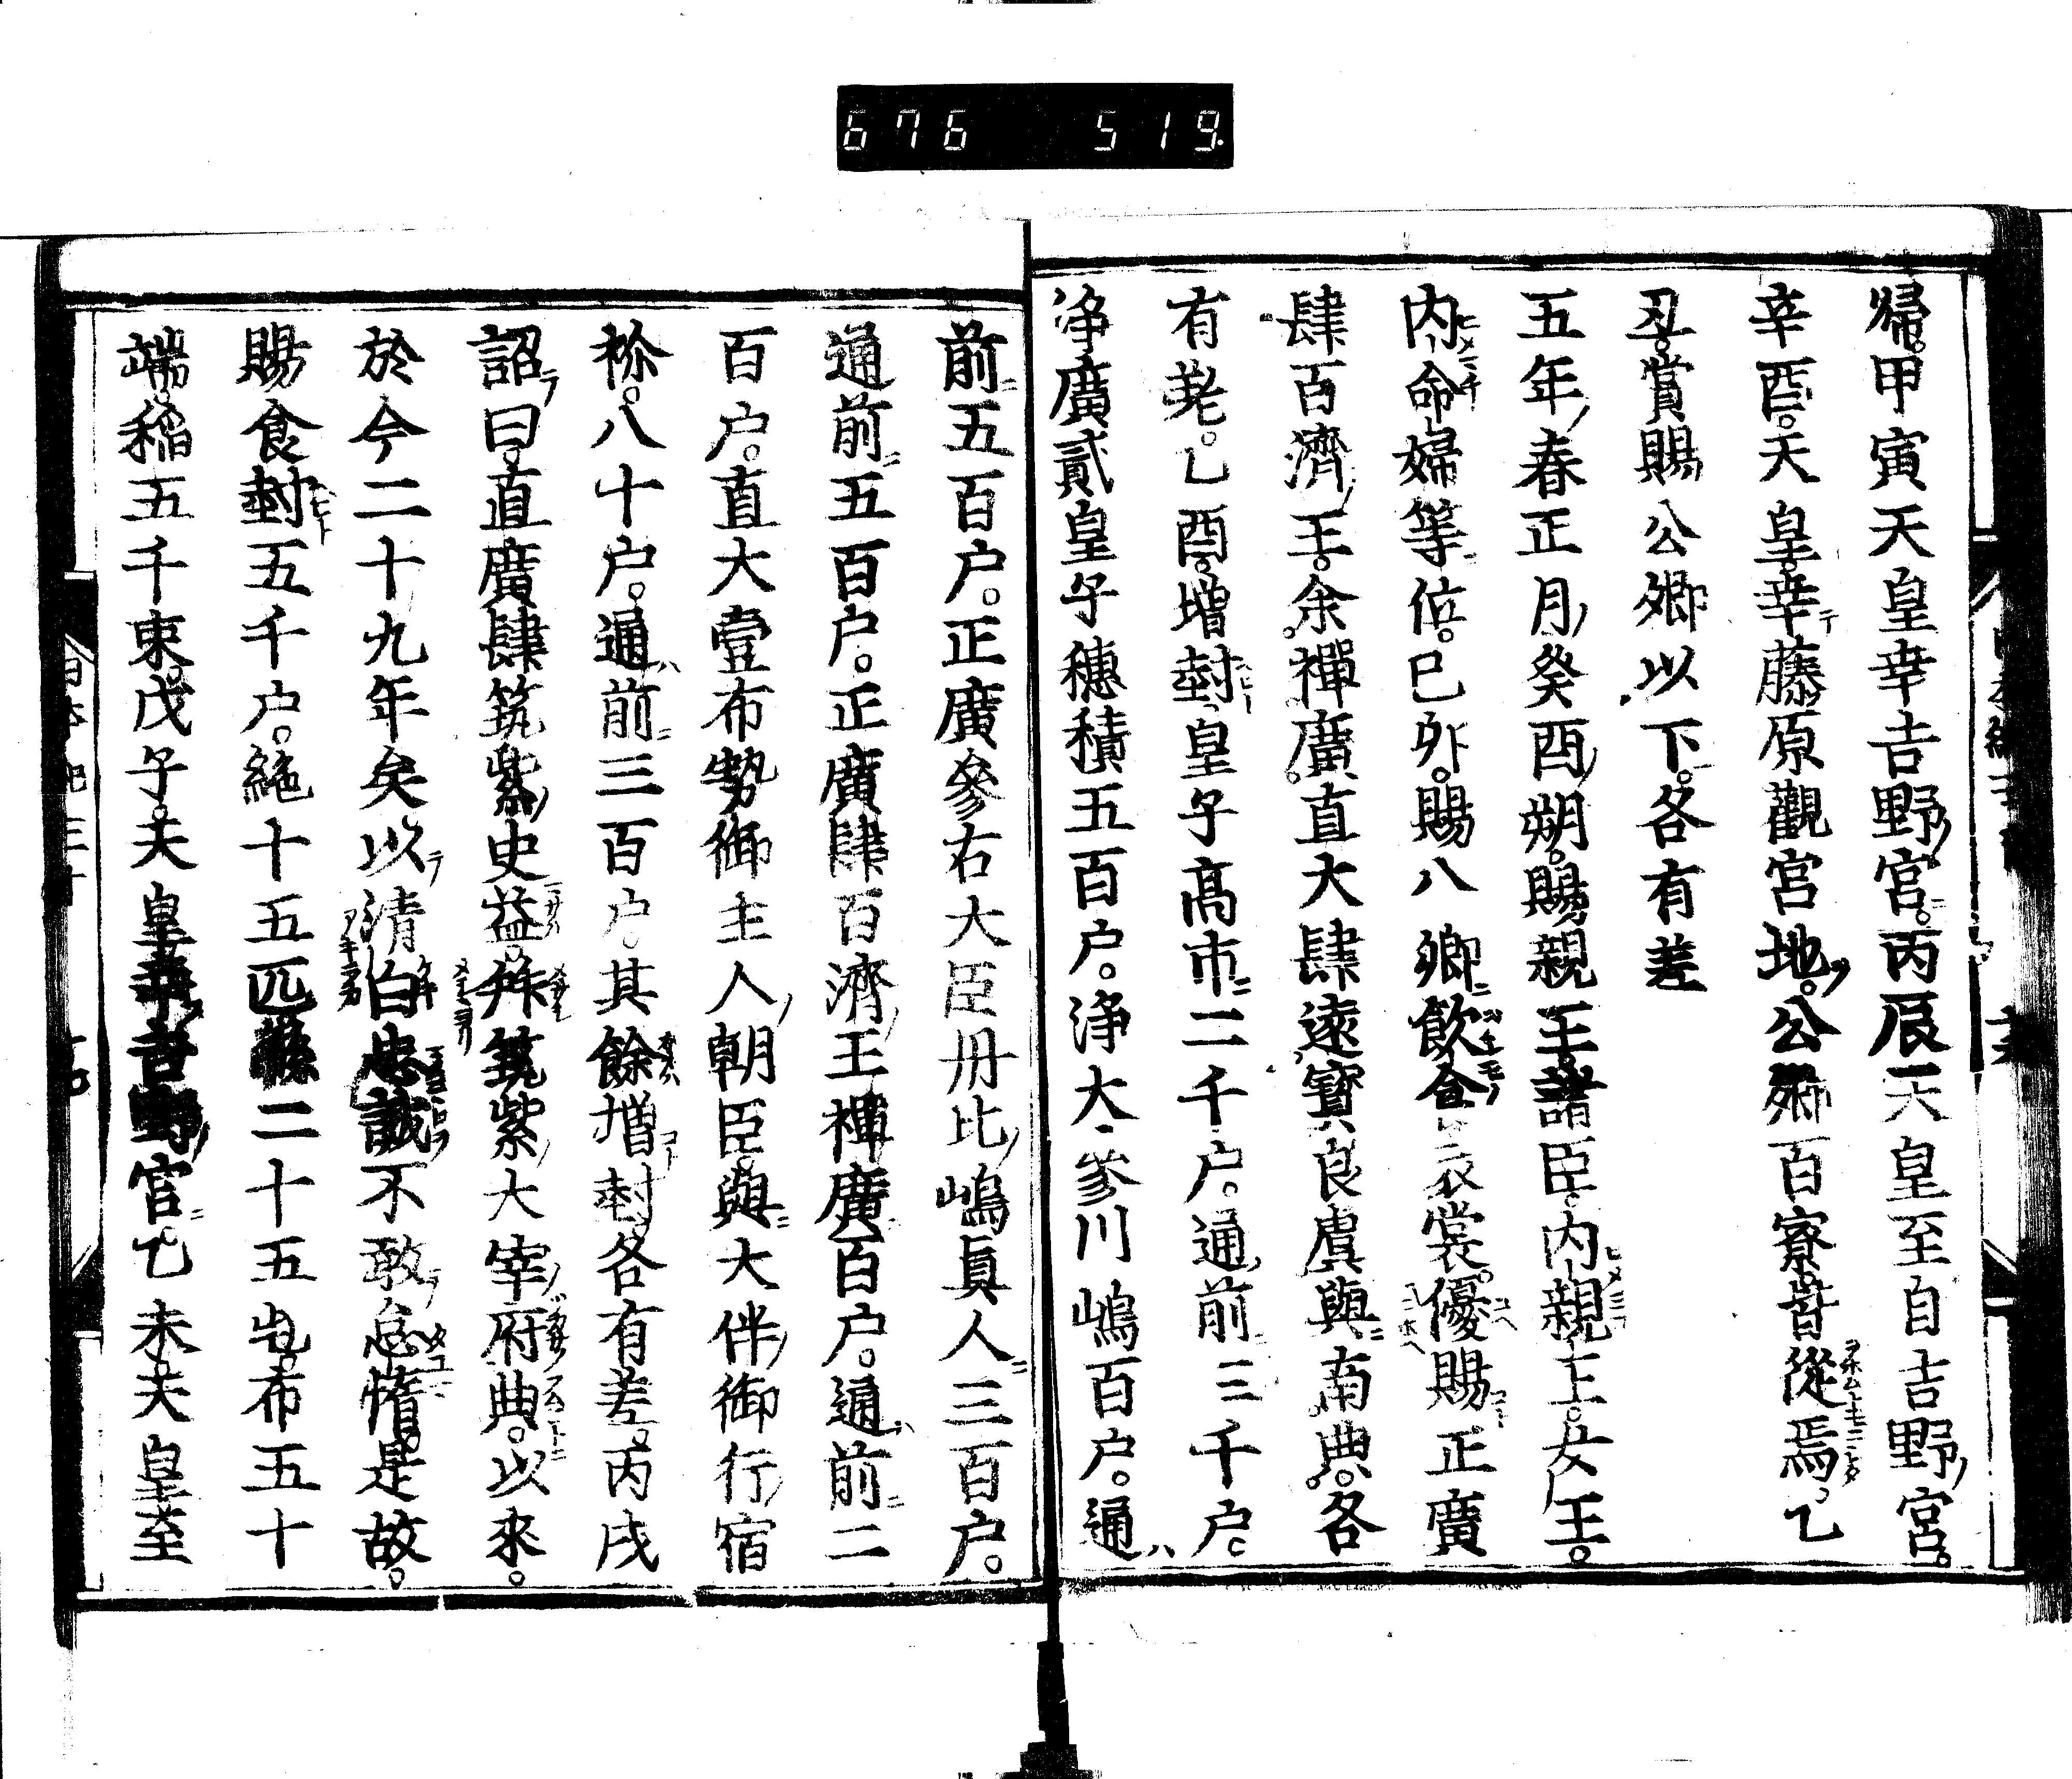 676 519
歸。甲寅天皇幸吉野宮。丙辰天皇至自吉野宮。
辛酉。天皇幸藤原觀宮地。公卿百寮皆從焉。乙
丑。賞賜公卿以下。各有差
五年春正月癸酉朔。賜親王諸臣。内親王。女王。
内命婦等位。己卯。賜八卿飲食衣裳。優賜正廣
肆百濟王余禪廣。直大肆遠寶良虞與南典。各
有差。乙酉。增封。皇子髙市二千户。通前三千户。
浄廣貳皇子穗積五百户。浄大參川嶋百户。通
前五百户。正廣參右大臣丹比嶋眞人三百户。
通前五百户。正廣肆百濟王禪廣百户。通前二
百户。直大壹布勢御主人朝臣。與大伴御行宿
祢。八十户。通前三百户。其餘增封。各有差。丙戌
詔曰。直廣肆筑紫史益。拜筑紫大宰府典。以來。
於今二十九年矣。以清白忠誠不敢怠惰。是故。
賜食封五千户。絁十五匹緜二十五屯。布五十
端。稲五千束。戊子。天皇幸吉野宮。乙未。天皇至